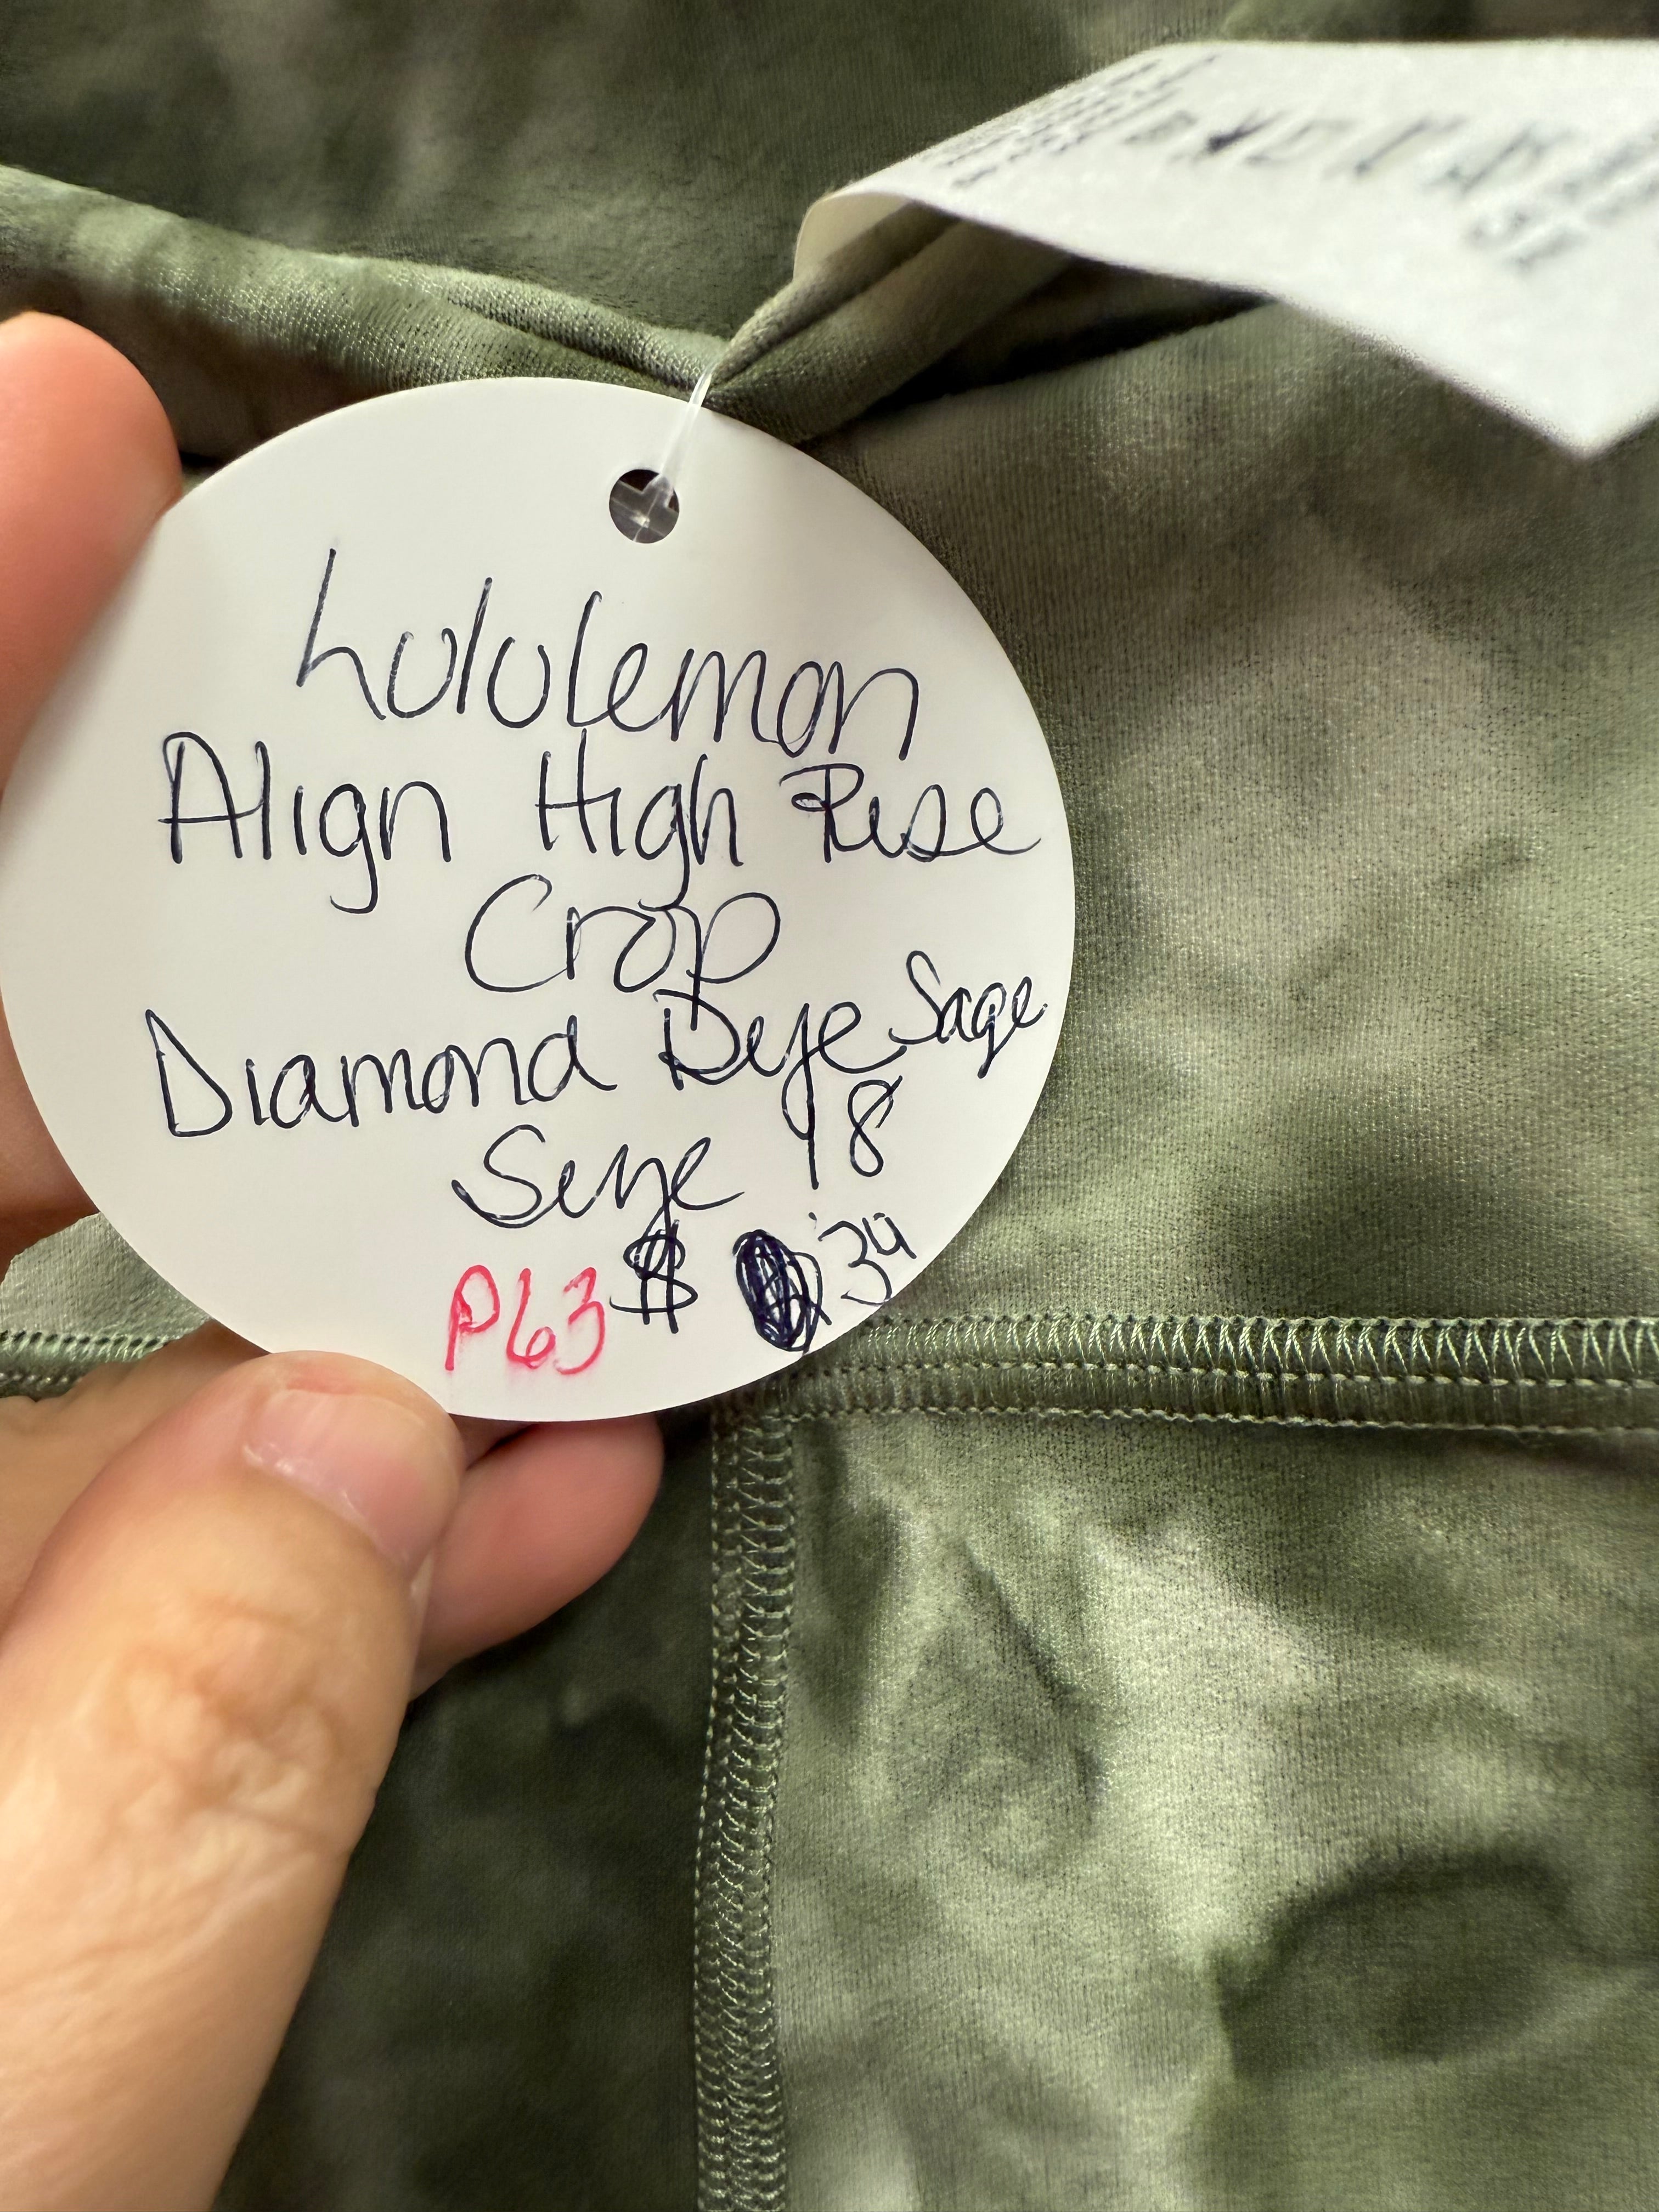 Lululemon
Align High Rise
Crop
Diamond Dye Sage
Size 18
P63 $ 34